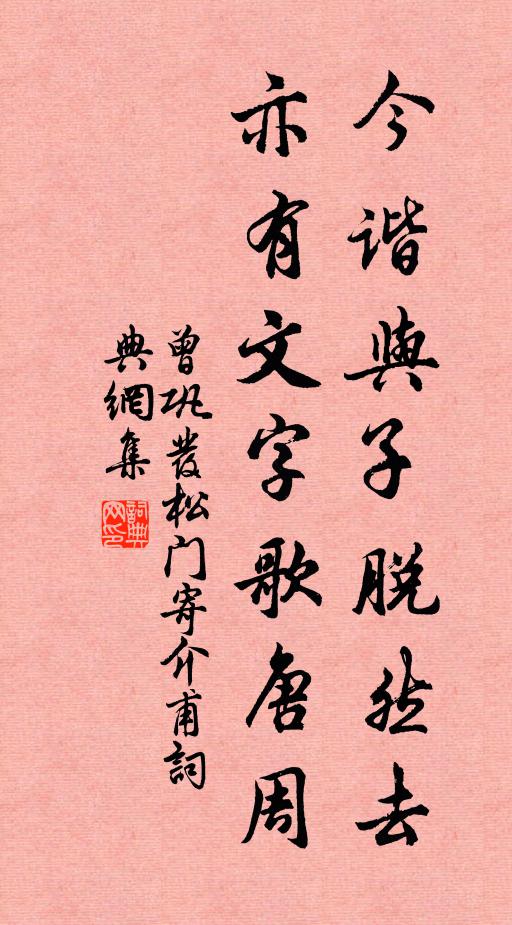 今谐與子脱然去
亦有文字歌唐周
曾巩发松门寄介甫詞
典網集
詞典
网印